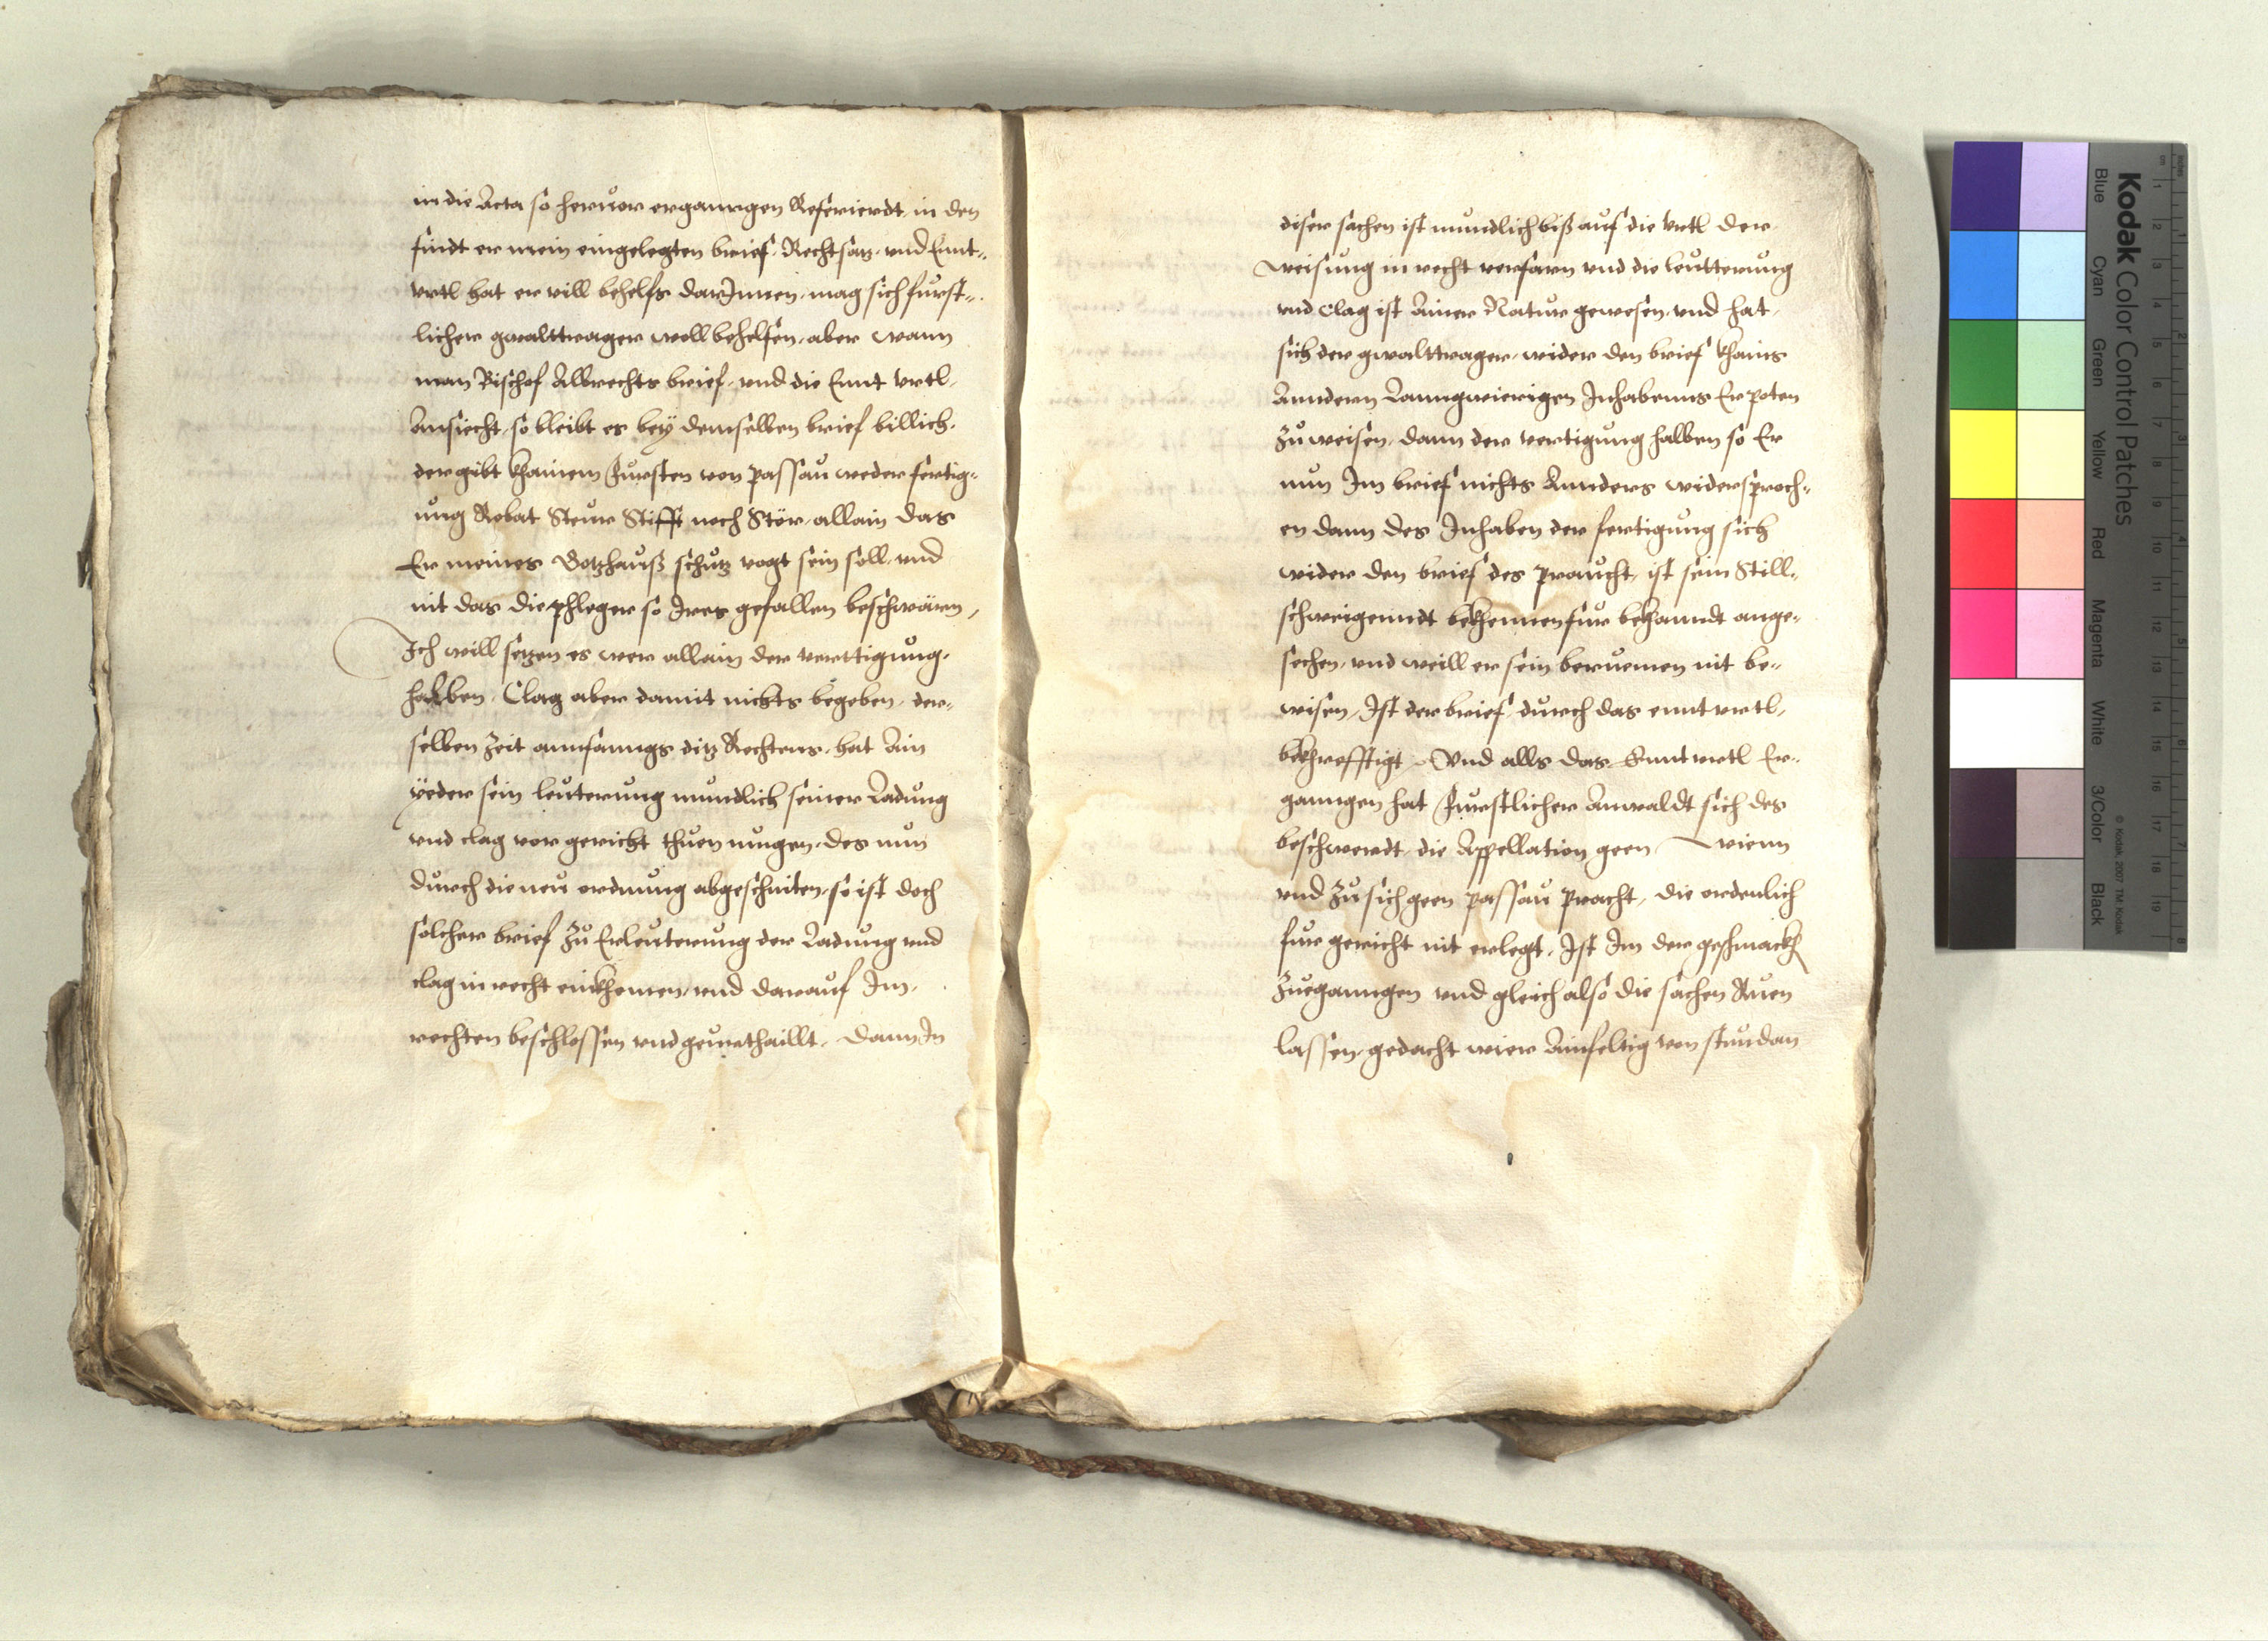 in die Acta so hervor ergangen Referierdt, in den
findt er mein eingelegten brief, Rechtsatz, und Ennt-
urtl hat er vill behelfs darInnen, mag sich fürst-
licher gwalttrager woll behelfen, aber wann
man Bischof Albrechts brief, und die Ennt urtl,
Ansiecht, so bleibt es beÿ demselben brief billich,
der gibt khainem Fürsten von passau weder fertig-
ung Robat Steur Stifft noch Stör, allain das
Er meines Gotzhauß schutz vogt sein soll, und
nit das die phleger so Ires gefallen beschwären,
Ich will setzen es wer allain der verttigung,
halben, Clag aber damit nichts begeben, der-
selben zeit annfanngs ditz Rechtens, hat Ain
ÿeder sein leuterung mundlich seiner Ladung
und clag vor gericht thuen mugen, des nun
durch die neu ordnung abgeschniten, so ist doch
solcher brief zu Erleuterung der Ladung und
clag in recht einkhomen, und darauf Im,
rechten beschlossen und geurthaillt, dann In
diser sachen ist mundlich biß auf die Urtl der
weisung in recht verfarn und die leutterung
und Clag ist Ainer Natur gewesen, und hat,
sich der gwalttrager, wider den brief khains
Anndern Lanngwierigen Inhabenns Erpoten
zu weisen, dann der vertigung halben so Er
nun Im brief nichts Annders widersproch-
en dann des Inhaben der fertigung sich
wider den brief des praucht, ist sein Still-
schweigenndt bekhennen für bekhanndt ange-
sechen, und weill er sein beruemen nit be-
wisen, Ist der brief, durch das ennt urtl,
bekhrefftigt, Und alls das Ennt urtl Er-
ganngen hat Fürstlicher Anwaldt sich des
beschwerdt, die Appellation geen Wienn
und zu sich geen passau pracht, die ordenlich
fur gericht nit erlegt, Ist Im der geschmackh
zueganngen und gleich also die sachen Ruen
lassen, gedacht wier Ainfeltig von stundan
Kodak Color Control Patches
Blue Cyan Green Yellow Red Magenta White 3/Color Black
© Kodak, 2007 TM: Kodak